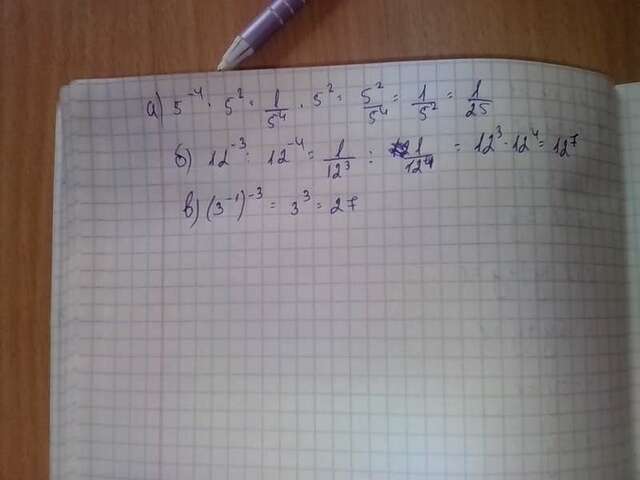 а) 5⁻⁴ · 5² = 1/5⁴ · 5² = 5²/5⁴ = 1/5² = 1/25
б) 12⁻³ : 12⁻⁴ = 1/12³ : 1/12⁴ = 12³ · 12⁴ = 12⁷
в) (3⁻¹)⁻³ = 3³ = 27